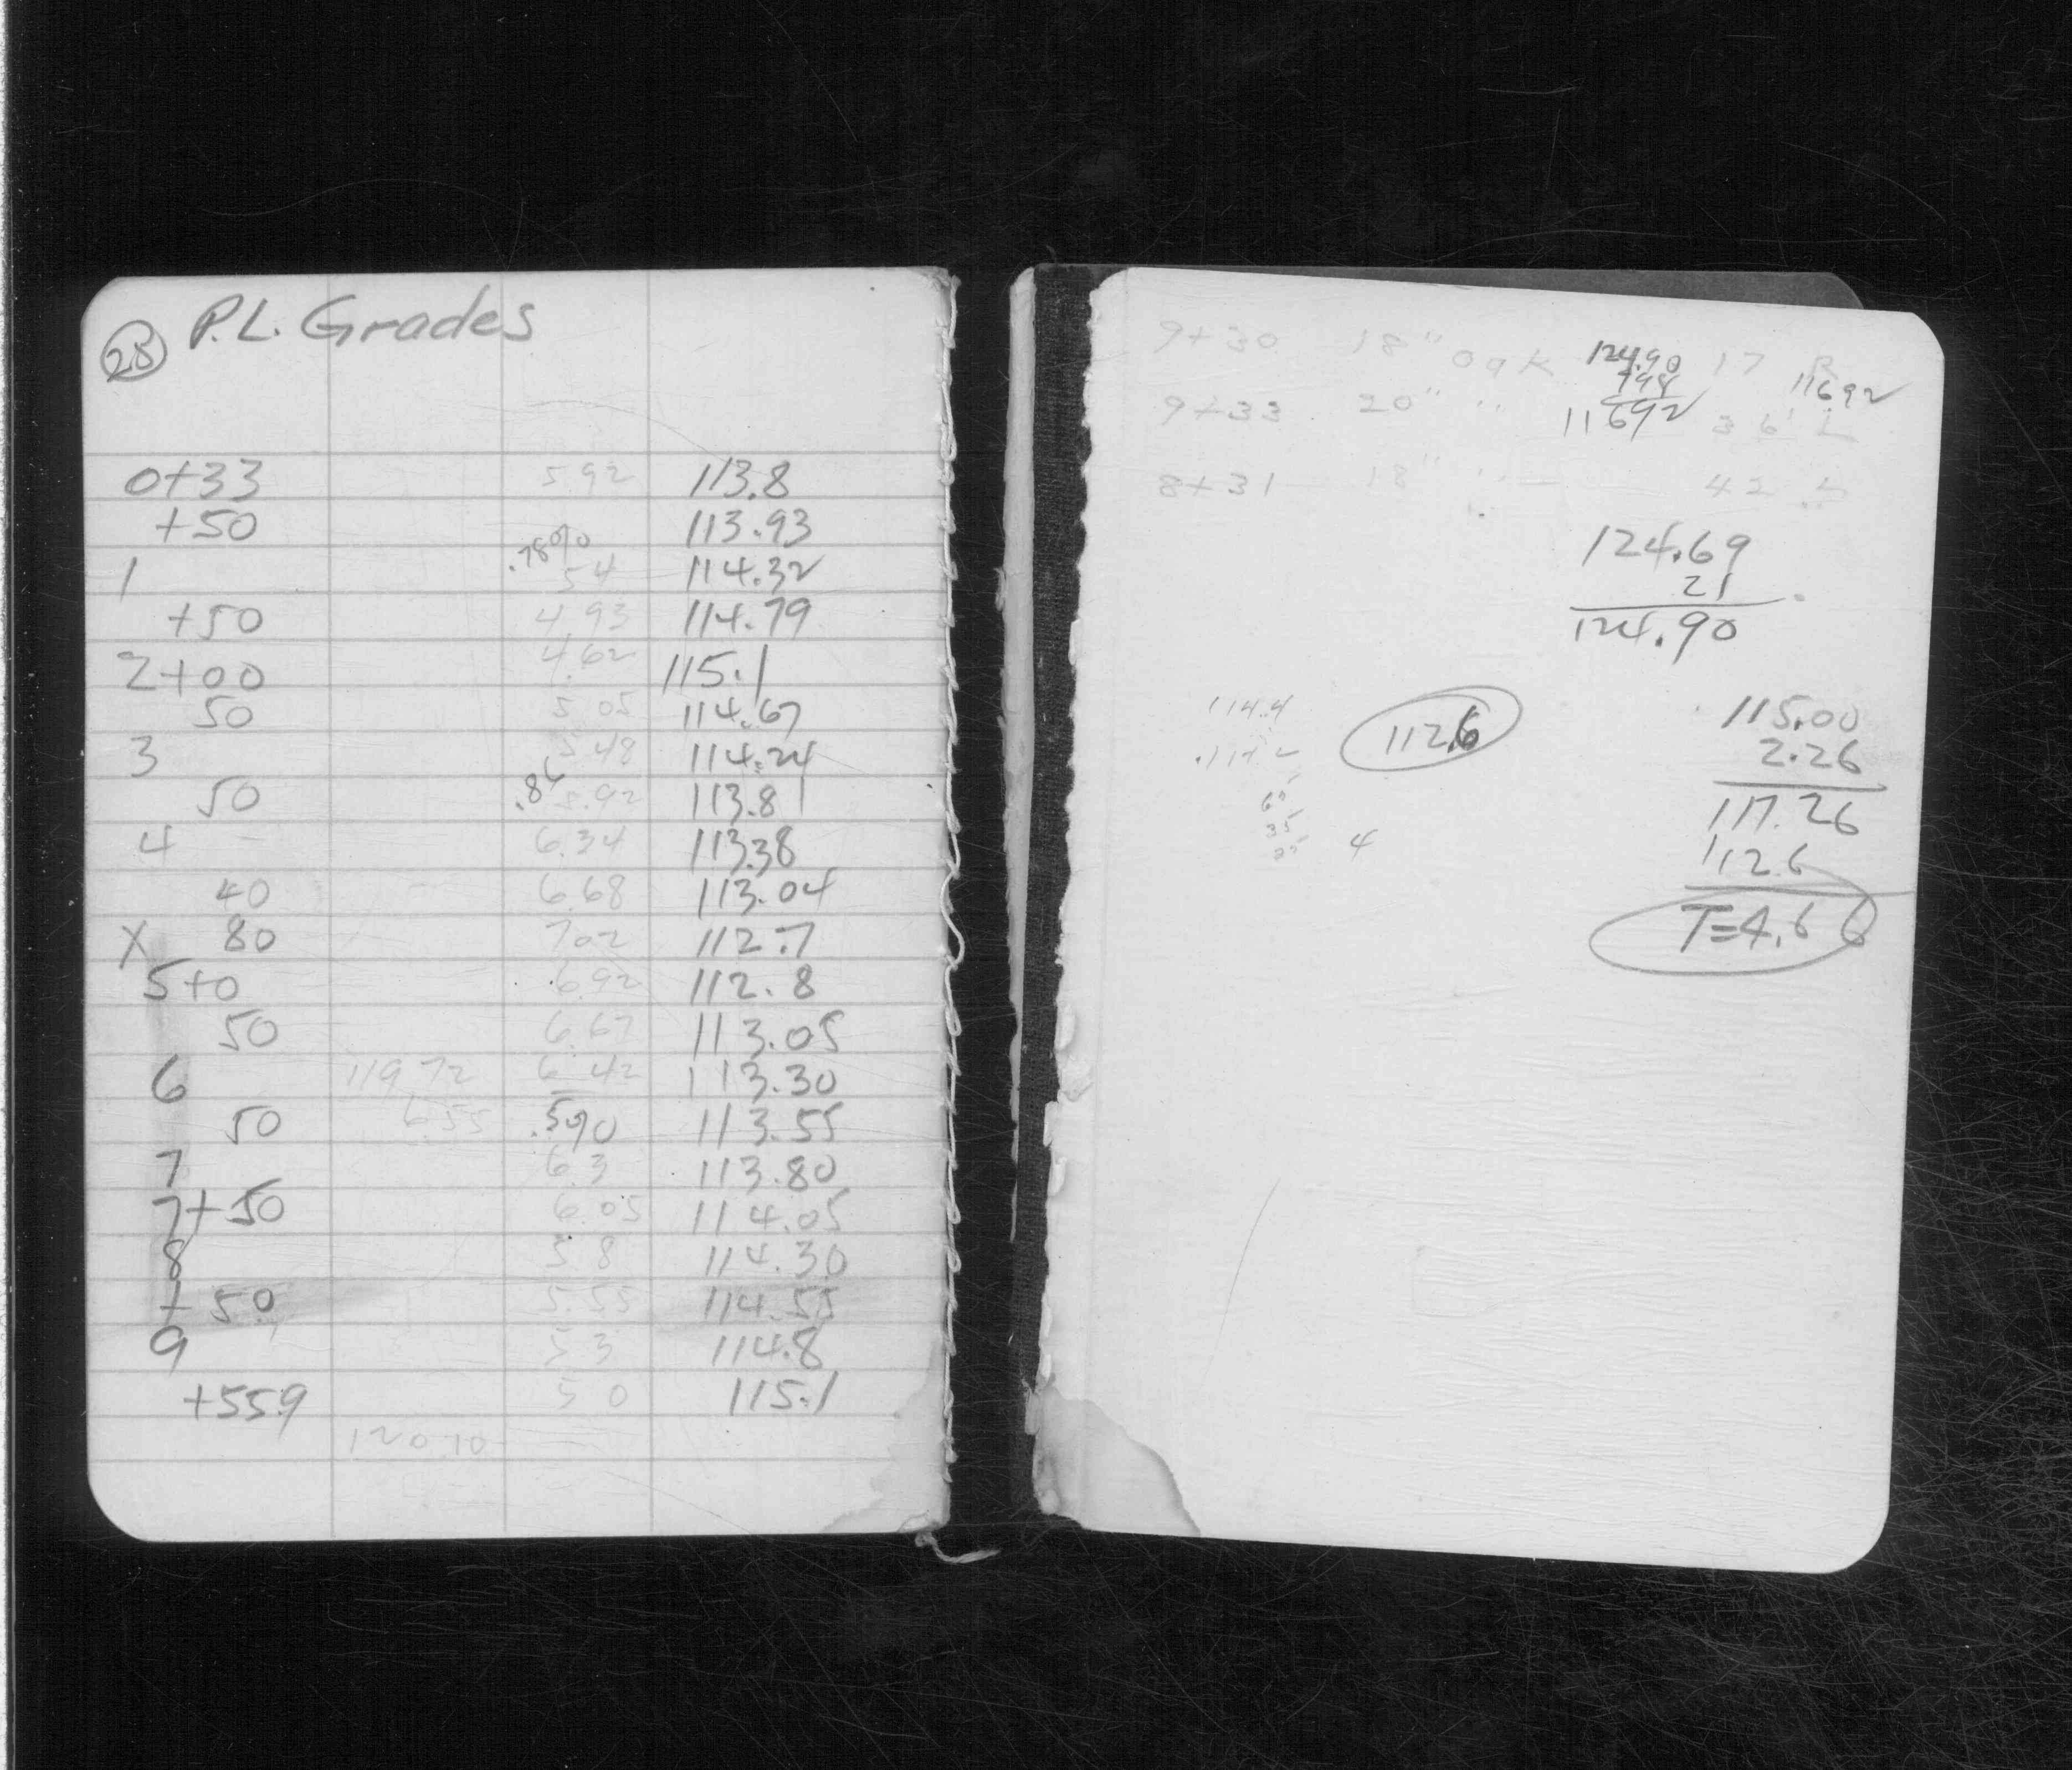 28 P.L. Grades
0+33 5.92 113.8
+50 113.93
.78%
1 5.4 114.32
+50 4.93 114.79
2+00 4.62 115.1
50 5.05 114.67
3 5.48 114.24
.86
50 5.92 113.81
4 6.34 113.38
40 6.68 113.04
X 80 7.02 112.7
5+0 6.92 112.8
50 6.67 113.05
6 119.72 6.42 113.30
50 6.55 .5% 113.55
7 6.3 113.80
7+50 6.05 114.05
8 5.8 114.30
+50 5.55 114.55
9 5.3 114.8
+55.9 5.0 115.1
120.10
9+30 18" oak 17 R
124.90
7.98
116.92
116.92
9+33 20" " 36' L
8+31 18" " 42 L
124.69
21
124.90
114.4
112.6
115.00
2.26
117.26
112.6
T=4.66
4